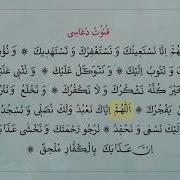 قنوت دعاسی
اللهم انا نستعينك و نستغفرك و نستهديك ۞ و نؤ
و نتوب اليك ۞ و نتوكل عليك ۞ و نثنى عليك
خير كله نشكرك ۞ و لا نكفرك ۞ و نخلع و نترك
يفجرك ۞ اللهم اياك نعبد و لك نصلى و نسجد
اليك نسعى و نحفد ۞ نرجو رحمتك و نخشى عذابك
ان عذابك بالكفار ملحق ۞